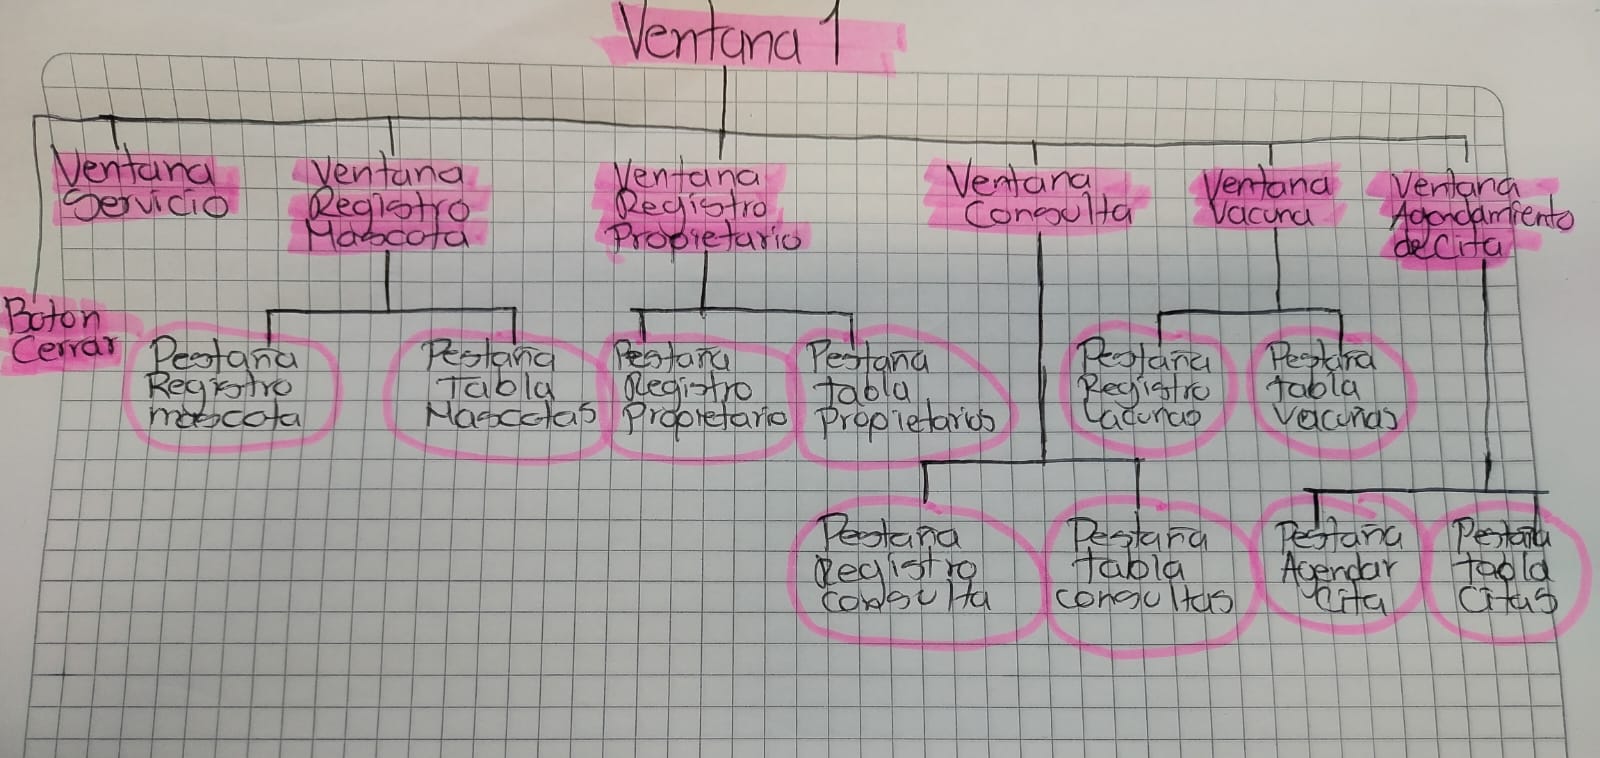 Ventana 1
Ventana
Servicio
Ventana
Registro
Mascota
Ventana
Registro
Propietario
Ventana
Consulta
Ventana
Vacuna
Ventana
Agendamiento
de Cita
Boton
Cerrar
Pestaña
Registro
mascota
Pestaña
Tabla
Mascotas
Pestaña
Registro
Propietario
Pestaña
tabla
propietarios
Pestaña
Registro
Pestaña
tabla
vacunas
Pestaña
Registro
consulta
Pestaña
tabla
consultas
Pestaña
Agendar
Cita
Pestaña
tabla
Citas